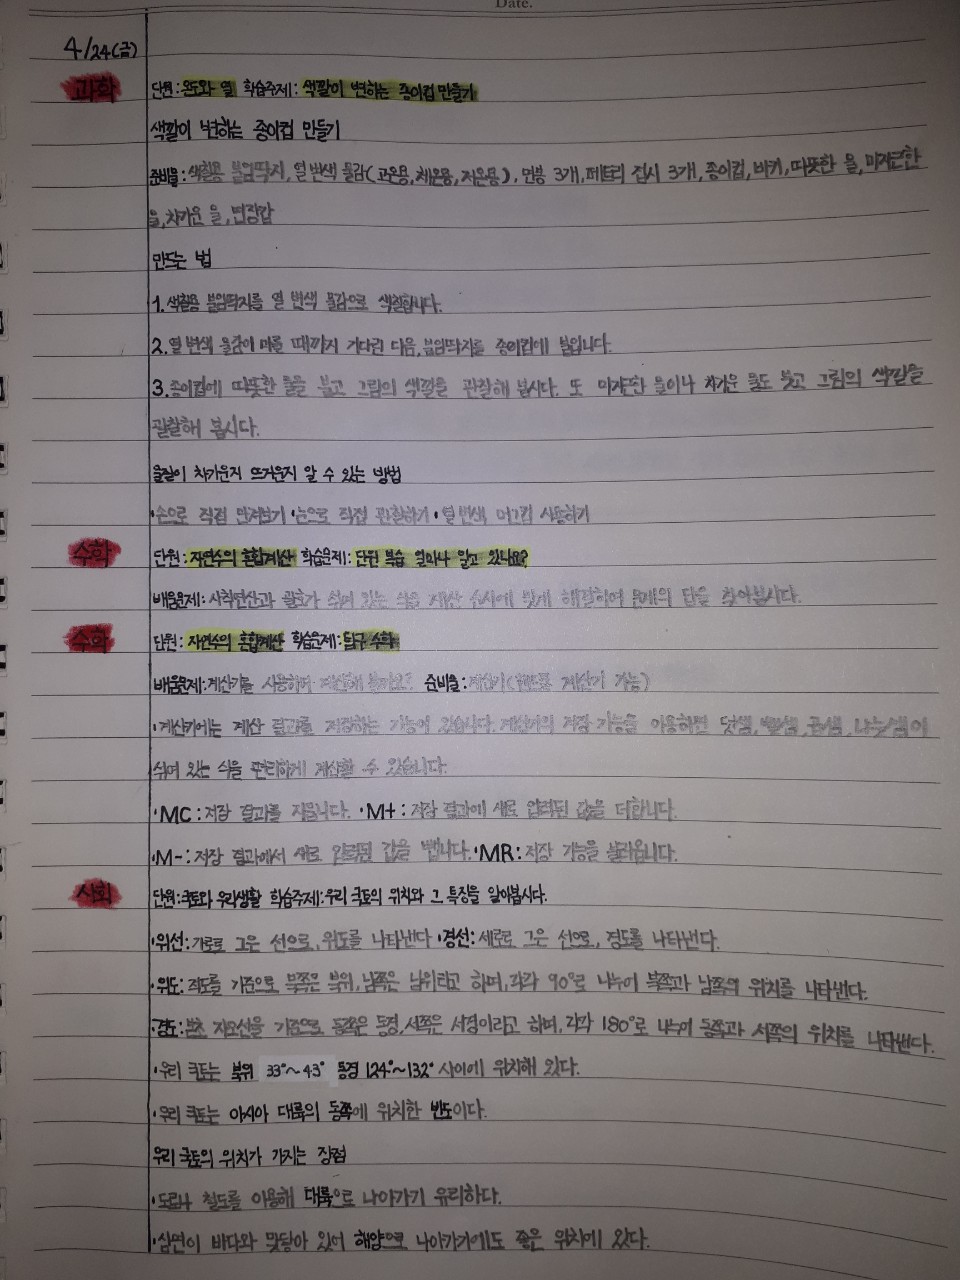 Date.
4/24(금)
과학 단원: 온도와 열 학습주제: 색깔이 변하는 종이컵 만들기
색깔이 변하는 종이컵 만들기
준비물: 색칠용 붙임딱지, 열 변색 물감(고온용, 체온용, 저온용), 면봉 3개, 페트리 접시 3개, 종이컵, 비커, 따뜻한 물, 미지근한
물, 차가운 물, 면장갑
만드는 법
1. 색칠용 붙임딱지를 열 변색 물감으로 색칠합니다.
2. 열 변색 물감이 마를 때까지 기다린 다음, 붙임딱지를 종이컵에 붙입니다.
3. 종이컵에 따뜻한 물을 붓고 그림의 색깔을 관찰해 봅시다. 또 미지근한 물이나 차가운 물도 붓고 그림의 색깔을
관찰해 봅시다.
물질이 차가운지 뜨거운지 알 수 있는 방법
·손으로 직접 만져보기 ·눈으로 직접 관찰하기 ·열 변색 머그컵 사용하기
수학 단원: 자연수의 혼합계산 학습문제: 단원 복습 얼마나 알고 있나요?
배움문제: 사칙연산과 괄호가 섞여 있는 식을 계산 순서에 맞게 해결하여 문제의 답을 찾아봅시다.
수학 단원: 자연수의 혼합계산 학습문제: 탐구 수학
배움문제: 계산기를 사용하여 계산해 볼까요? 준비물: 계산기(핸드폰 계산기 가능)
·계산기에는 계산 결과를 저장하는 기능이 있습니다. 계산기의 저장 기능을 이용하면 덧셈, 뺄셈, 곱셈, 나눗셈이
섞여 있는 식을 편리하게 계산할 수 있습니다.
·MC: 저장 결과를 지웁니다. ·M+: 저장 결과에 새로 입력된 값을 더합니다.
·M-: 저장 결과에서 새로 입력된 값을 뺍니다. ·MR: 저장 기능을 불러옵니다.
사회 단원: 국토와 우리생활 학습주제: 우리 국토의 위치와 그 특징을 알아봅시다.
·위선: 가로로 그은 선으로, 위도를 나타낸다 ·경선: 세로로 그은 선으로, 경도를 나타낸다.
·위도: 적도를 기준으로 북쪽은 북위, 남쪽은 남위라고 하며, 각각 90°로 나누어 북쪽과 남쪽의 위치를 나타낸다.
·경도: 본초 자오선을 기준으로 동쪽은 동경, 서쪽은 서경이라고 하며, 각각 180°로 나누어 동쪽과 서쪽의 위치를 나타낸다.
·우리 국토는 북위 33°~43° 동경 124°~132° 사이에 위치해 있다.
·우리 국토는 아시아 대륙의 동쪽에 위치한 반도이다.
우리 국토의 위치가 가지는 장점
·도로나 철도를 이용해 대륙으로 나아가기 유리하다.
·삼면이 바다와 맞닿아 있어 해양으로 나아가기에도 좋은 위치에 있다.